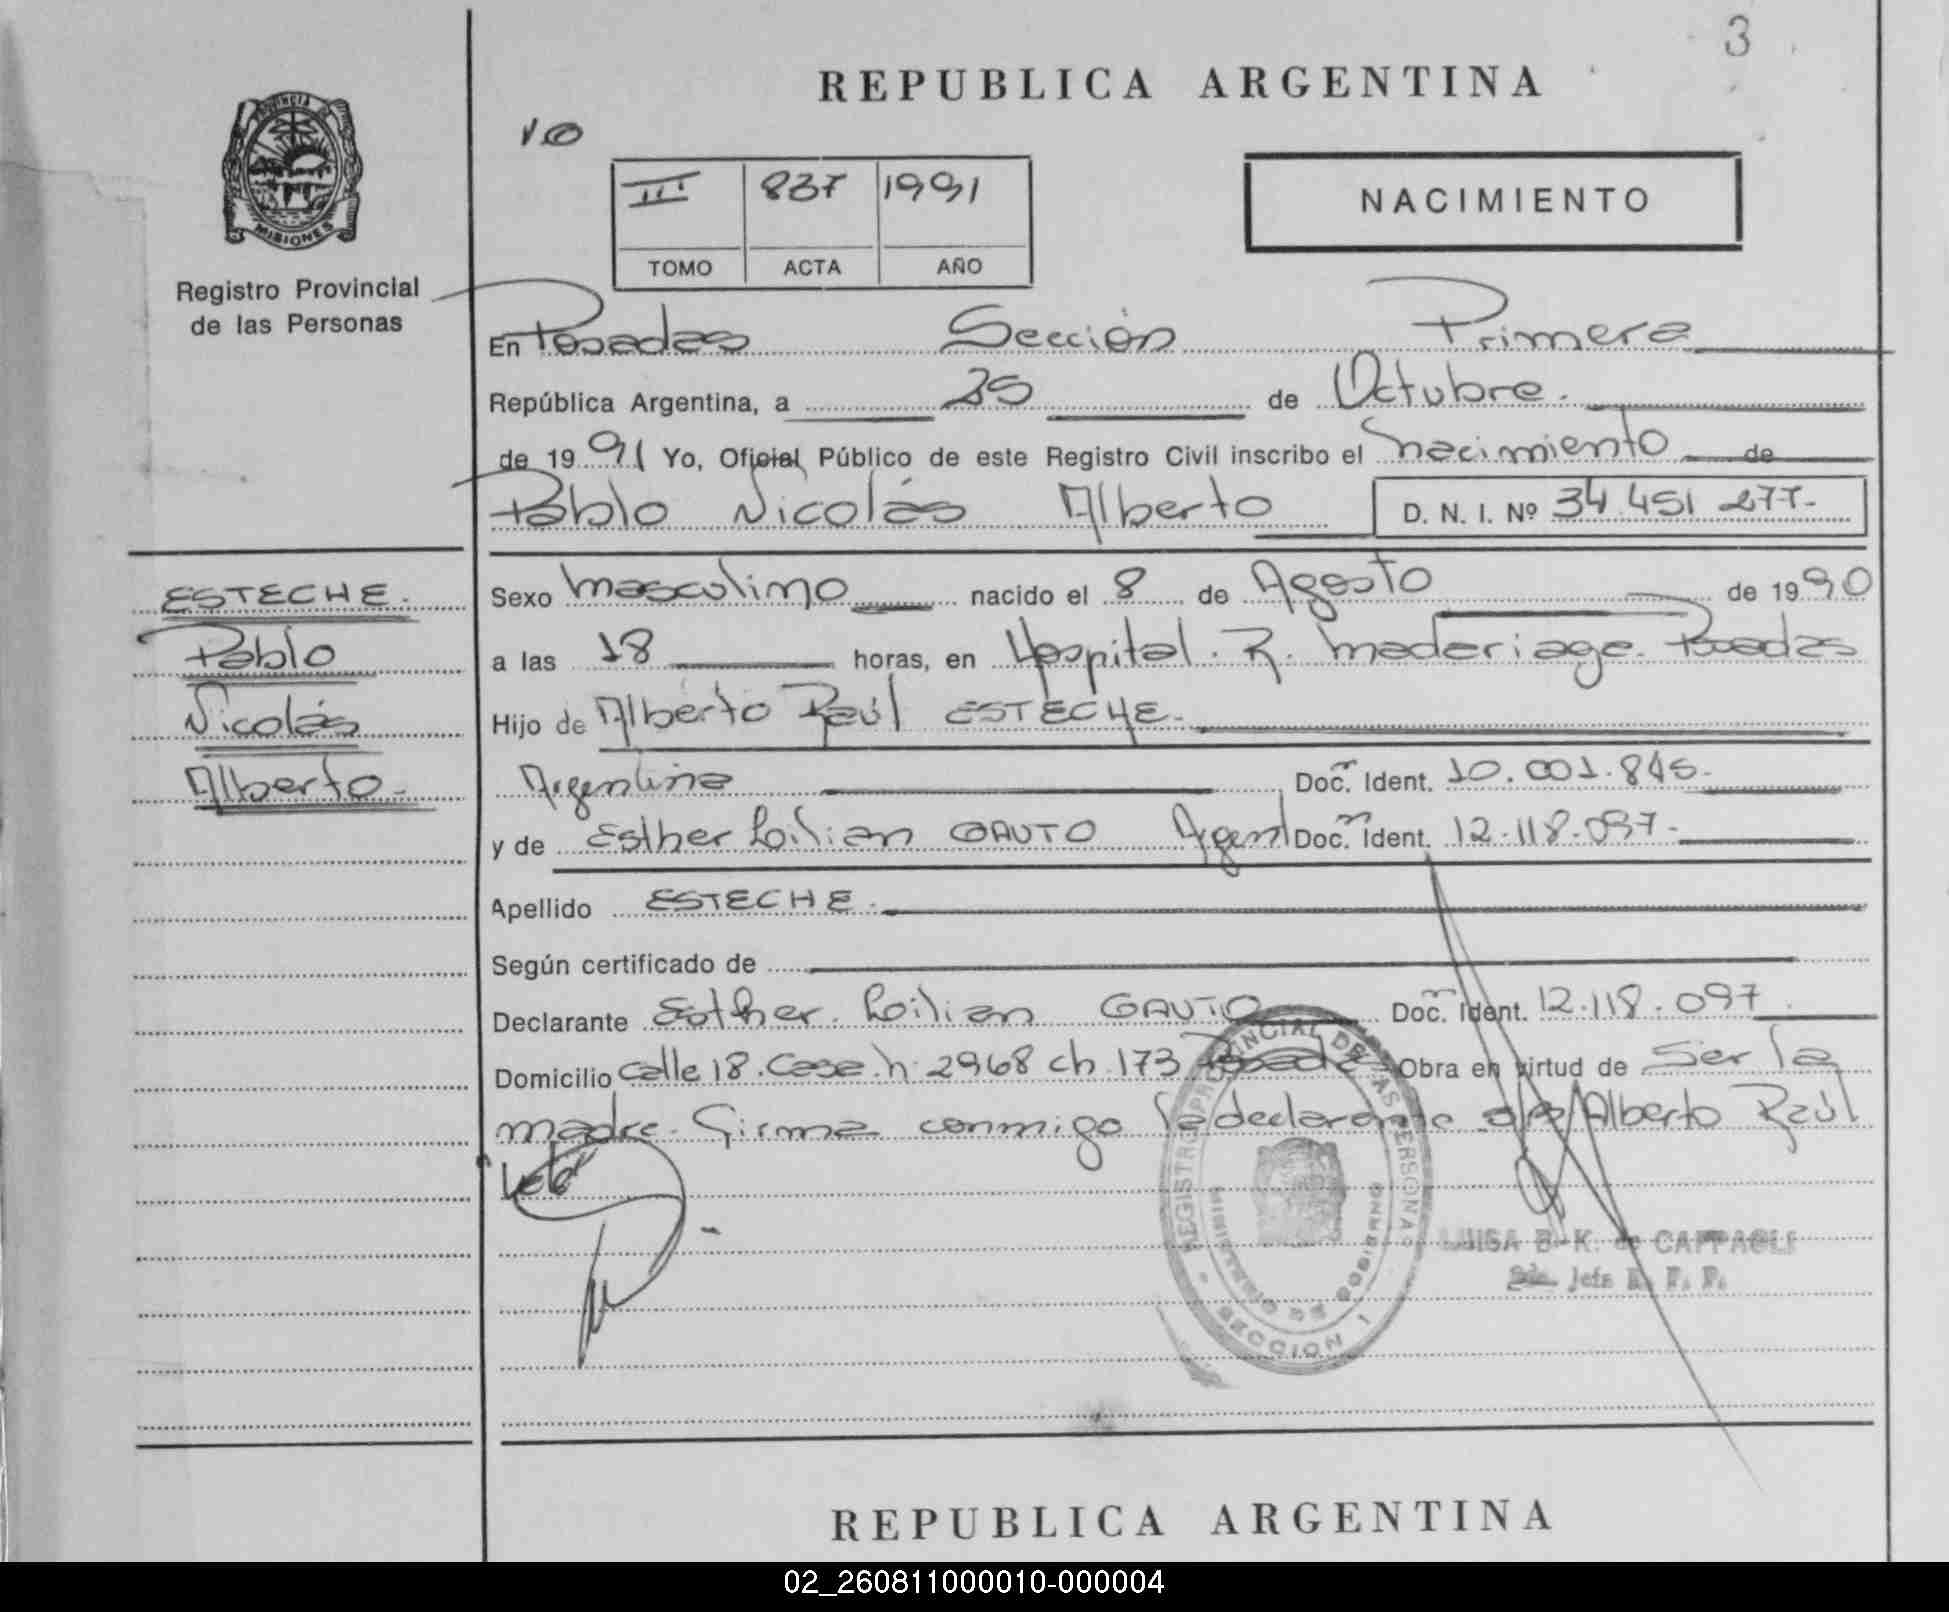 3
REPUBLICA ARGENTINA
PROVINCIA DE
MISIONES
Registro Provincial
de las Personas
III 837 1991
TOMO ACTA AÑO
NACIMIENTO
En Posadas Sección Primera
República Argentina, a 25 de Octubre.
de 1991 Yo, Oficial Público de este Registro Civil inscribo el nacimiento de
Pablo Nicolás Alberto D. N. I. Nº 34.451.277.-
ESTECHE.
Pablo
Nicolás
Alberto.-
Sexo masculino nacido el 8 de Agosto de 1990
a las 18 horas, en Hospital. R. Madariaga. Posadas
Hijo de Alberto Raúl ESTECHE.-
Argentina Docm. Ident. 10.001.845.-
y de Esther Lilian GAUTO Argent Docm. Ident. 12.118.097.-
Apellido ESTECHE.
Según certificado de
Declarante Esther. Lilian GAUTO Docm. Ident. 12.118.097.
Domicilio Calle 18. Casa. n. 2968 ch. 173 Posadas Obra en virtud de Ser la
madre. Firma conmigo la declarante Alberto Raúl
Vale
REGISTRO PROVINCIAL DE LAS PERSONAS
MINISTERIO DE GOBIERNO
SECCION 1
LUISA B. K. de CAPPAGLI
Jefa R. P. P.
REPUBLICA ARGENTINA
02_260811000010-000004